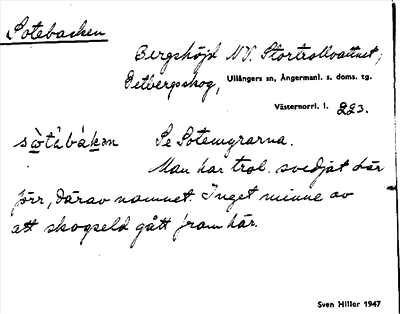 Sotebacken
Bergshöjd NV. Stortrollvattnet,
Getbergsskog, Ullångers sn, Ångermanl. s. doms. tg.
Västernorrl. l. 223.
Se Sotemyrarna.
Man har trol. svedjat där
förr, därav namnet. Inget minne av
att skogseld gått fram här.
Sven Hiller 1947